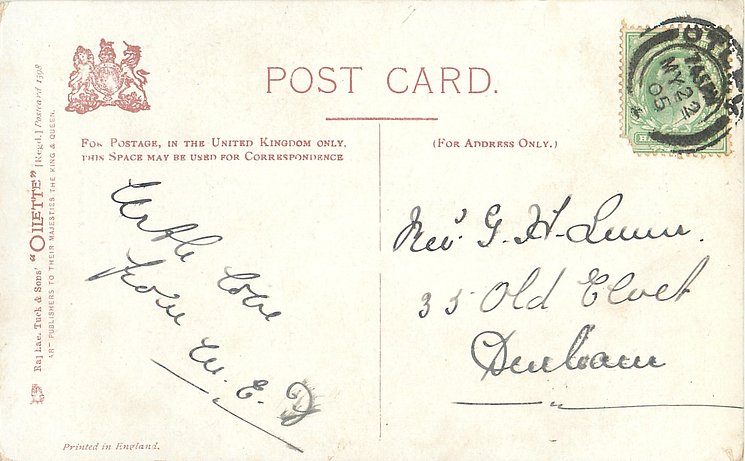 POST CARD.
FOR POSTAGE, IN THE UNITED KINGDOM ONLY,
THIS SPACE MAY BE USED FOR CORRESPONDENCE
(FOR ADDRESS ONLY.)
With love
from M. E. D
Rev. G. H. Lunn.
35 Old Elvet
Durham
Raphael Tuck & Sons' "OILETTE" [Regd.] Postcard 1598
ART PUBLISHERS TO THEIR MAJESTIES THE KING & QUEEN.
Printed in England.
MY 22
05